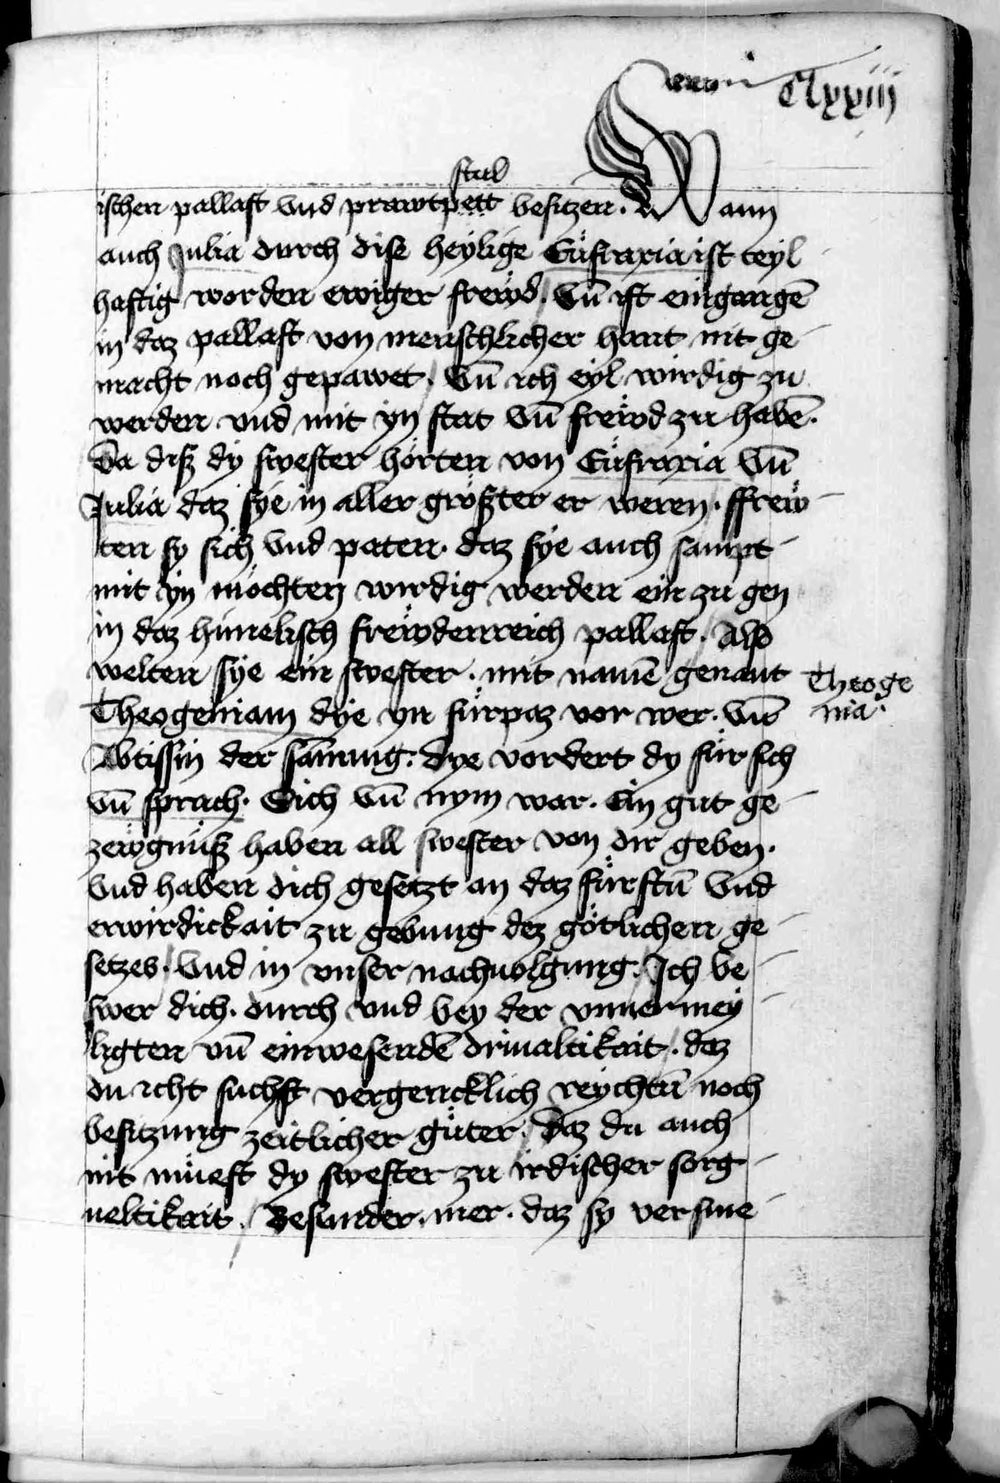 Clxxiii
stul
ischen pallast vnd prawtpett besitzen. Wann
auch Julia durch dise heylige Eufraxia ist teyl
haftig worden ewiger frewd. Vn̄ ist eingangē
in daz pallast von menschlicher hant nit ge
macht noch gepawet. Vn̄ ich eyl wirdig zu
werden vnd mit yn stat vn̄ frewd zu habē.
Da diß dy swester hörten von Eufraxia vn̄
Julia daz sye in aller größter er weren. ffrew
ten sy sich vnd paten. daz sye auch sampt
mit yn möchten wirdig werden ein zu gen
in daz himelisch frewdenreich pallast. Also
welten sye ein swester. mit namē genant
Theogeniam dye yn fürpaz vor wer. vn̄
Abtissin der samnng. Dye vordert dy für sich
vn̄ sprach. Sich vn̄ nym war. Ein gut ge
zewgnüß haben all swester von dir geben.
Vnd haben dich gesetzt an daz fürstū vnd
erwirdickait zu gebung dez götlichen ge
setzes. Vnd in vnser nachuolgung. Ich be
swer dich. durch vnd bey der vnuermey
ligten vn̄ einwesendē driualtikait. daz
du icht suchst vergencklich reychtū noch
besitzung zeitlicher güter. Daz du auch
nit müest dy swester zu irdischer sorg
ueltikait. Besunder. mer. daz sy versme
Theoge
nia